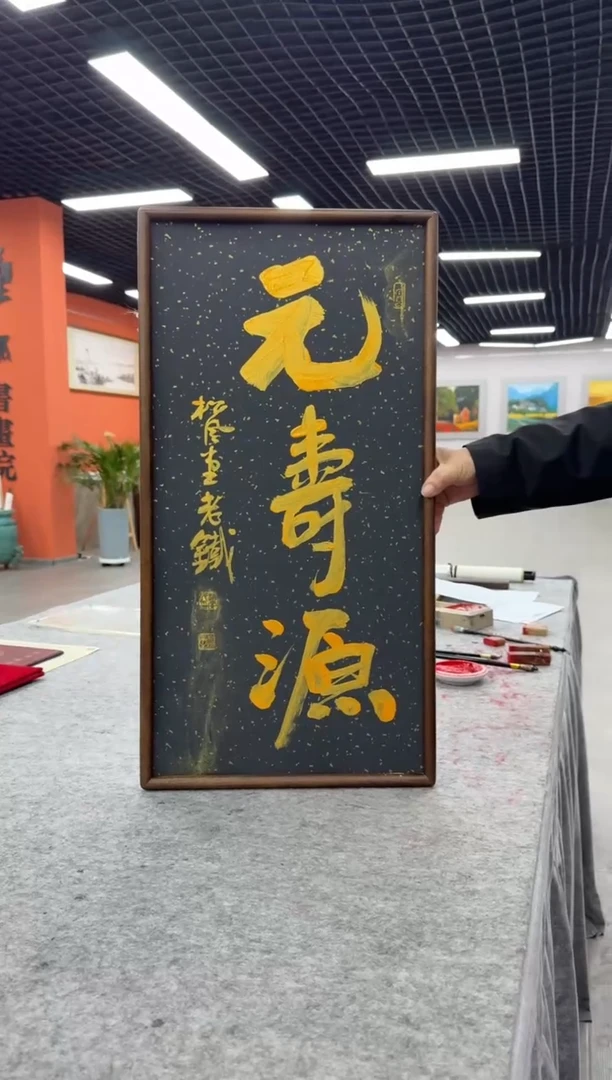 元壽源
老鐵
書畫院